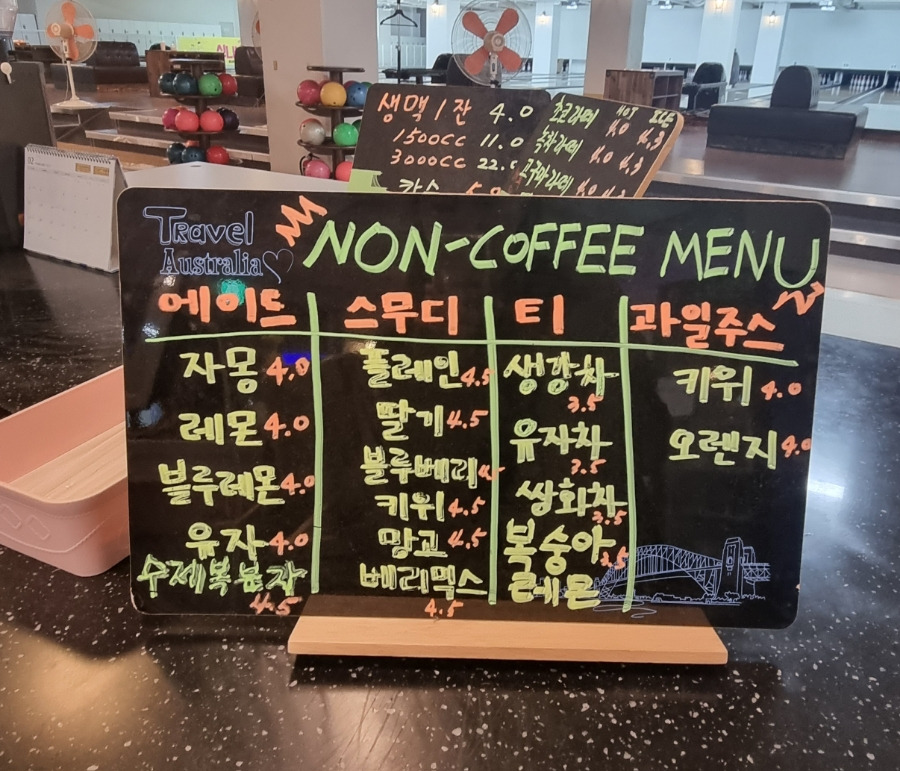 생맥 1잔 4.0
1500cc 11.0
3000cc 22.0
카스
HOT ICE
초코라떼 4.0 4.3
녹차라떼 4.0 4.3
고구마라떼 4.0 4.3
Travel
Australia
NON-COFFEE MENU
에이드
자몽 4.0
레몬 4.0
블루레몬 4.0
유자 4.0
수제복분자
4.5
스무디
플레인 4.5
딸기 4.5
블루베리
키위 4.5
망고 4.5
베리믹스
4.5
티
생강차
3.5
유자차
3.5
쌍화차
3.5
복숭아 3.5
레몬
과일주스
키위 4.0
오렌지 4.0